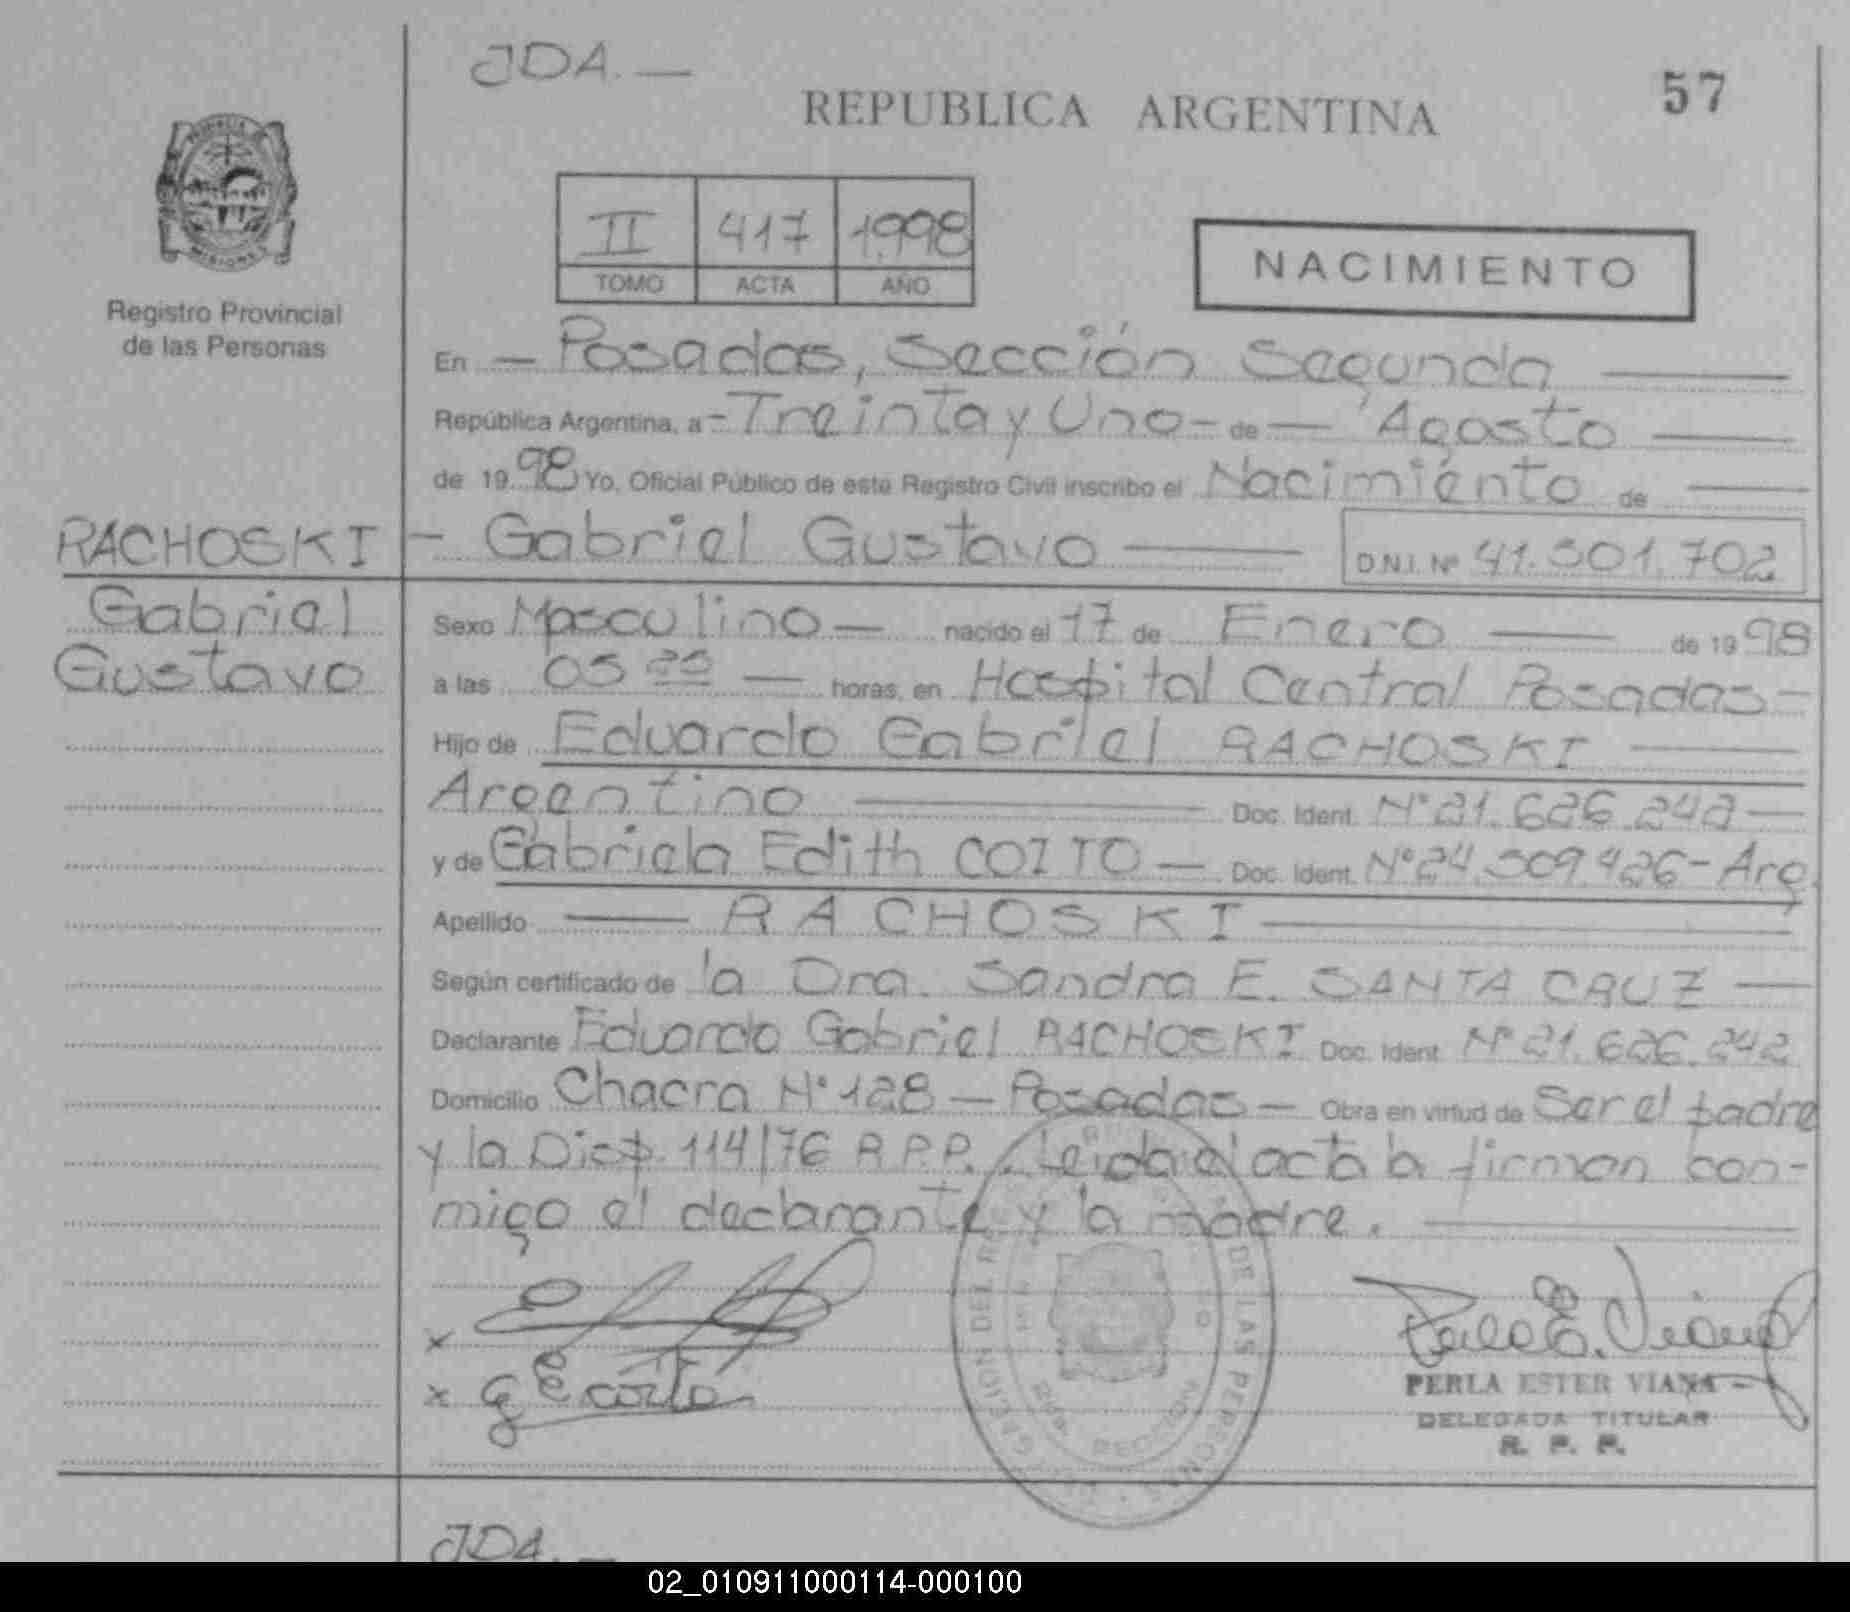 JDA. —
57
REPUBLICA ARGENTINA
II 417 1.998
TOMO ACTA AÑO
NACIMIENTO
Registro Provincial
de las Personas
En — Posadas, Sección Segunda —
República Argentina, a - Treinta y Uno - de — Agosto —
de 19 98 Yo, Oficial Público de este Registro Civil inscribo el Nacimiento de —
RACHOSKI - Gabriel Gustavo — D.N.I. Nº 41.301.702
Gabriel
Gustavo
Sexo Masculino — nacido el 17 de Enero — de 19 98
a las 05 — horas, en Hospital Central Posadas -
Hijo de Eduardo Gabriel RACHOSKI —
Argentino — Doc. Ident. Nº 21.626.242 —
y de Gabriela Edith COITO — Doc. Ident. Nº 24.309.426 - Arg.
Apellido — RACHOSKI —
Según certificado de la Dra. Sandra E. SANTA CRUZ —
Declarante Eduardo Gabriel RACHOSKI Doc. Ident. Nº 21.626.242
Domicilio Chacra Nº 128 — Posadas — Obra en virtud de Ser el padre
y la Disp. 114/76 R.P.P. . Leida el acta la firman con-
migo el declarante y la madre. —
x
x G E Coito
PERLA ESTER VIANA
DELEGADA TITULAR
R. P. P.
DE LAS PERSONAS
JDA. —
02_010911000114-000100